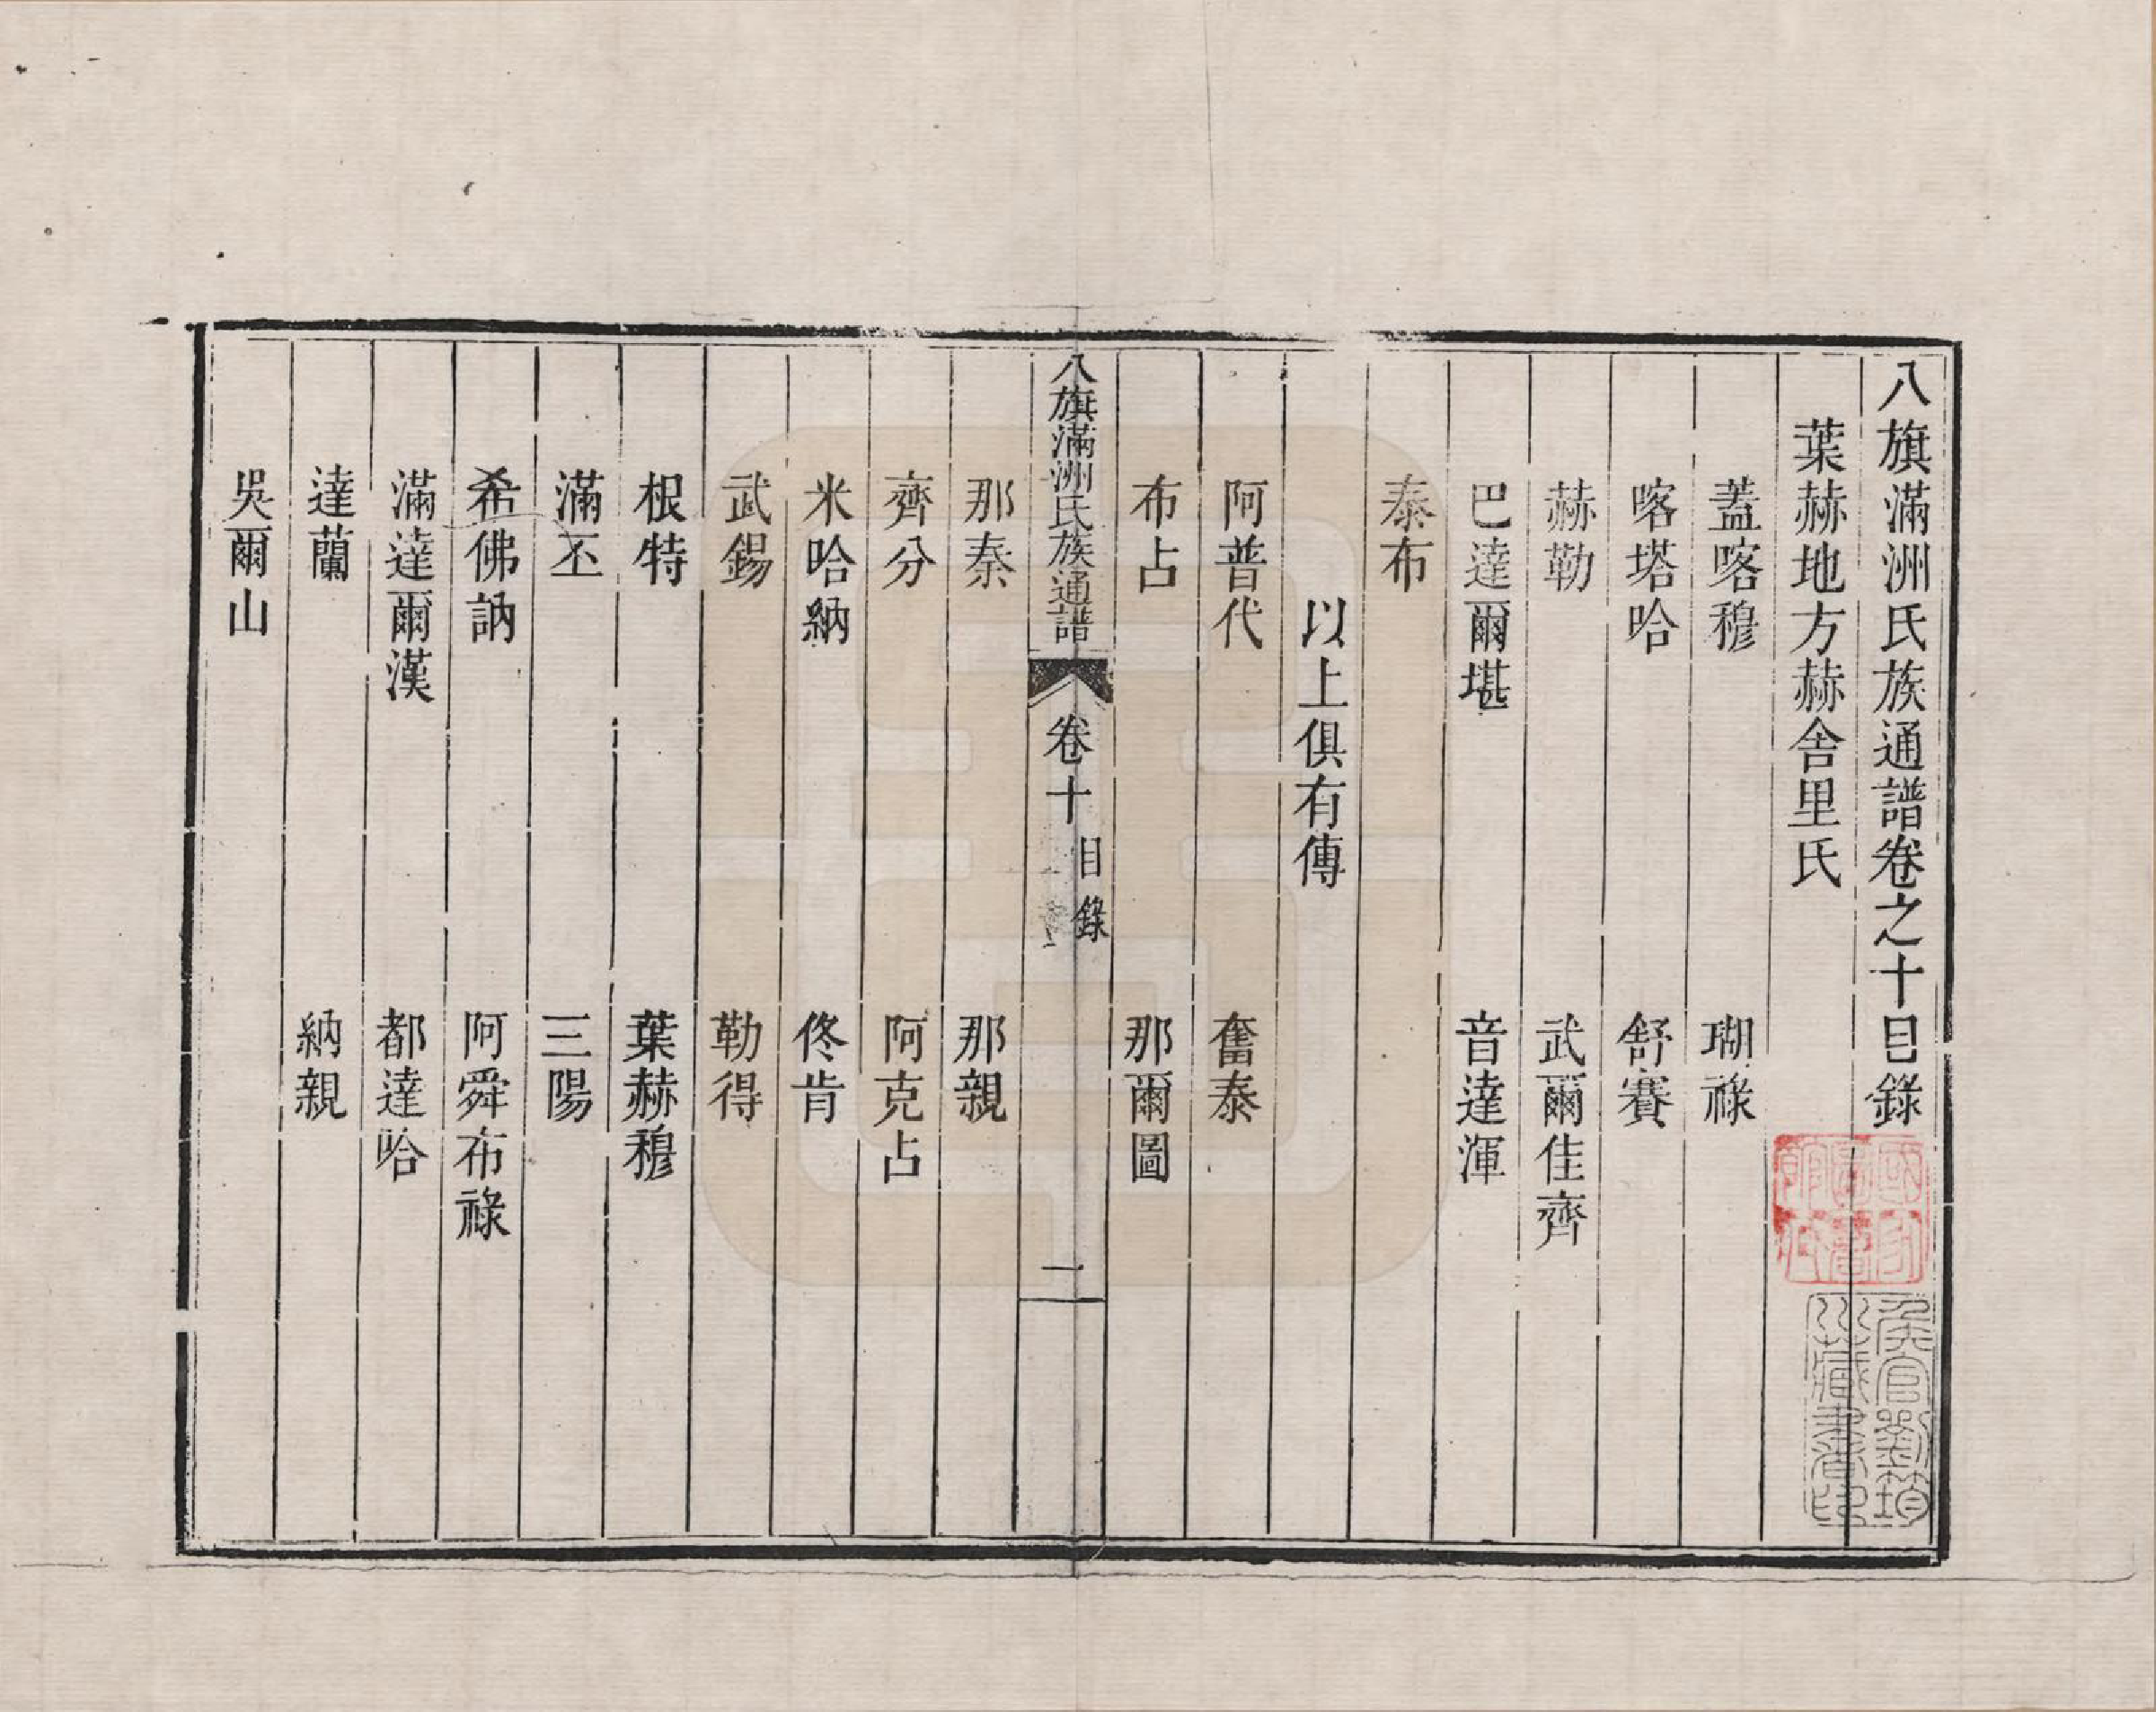 八旗滿洲氏族通譜卷之十目錄
葉赫地方赫舍里氏
蓋喀穆　瑚祿
喀塔哈　舒賽
赫勒　武爾佳齊
巴達爾堪　音達渾
泰布
以上俱有傳
阿普代　奮泰
布占　那爾圖
八旗滿洲氏族通譜　卷十　目錄　一
那秦　那親
齊分　阿克占
米哈納　佟肯
武錫　勒得
根特　葉赫穆
滿丕　三陽
希佛訥　阿舜布祿
滿達爾漢　都達哈
達蘭　納親
吳爾山
侯官劉筠
川藏書者印